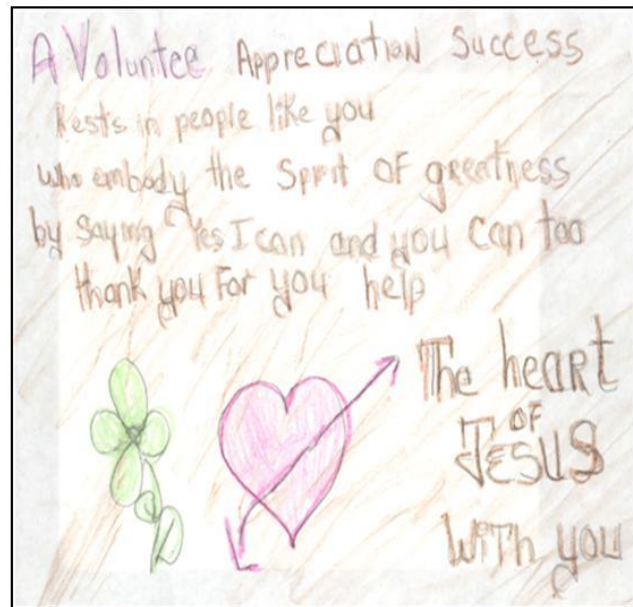 A Voluntee Appreciation Success
Rests in people like you
who embody the Spirit of greatness
by saying Yes I can and you can too
thank you For you help
The heart
OF
JESUS
With you